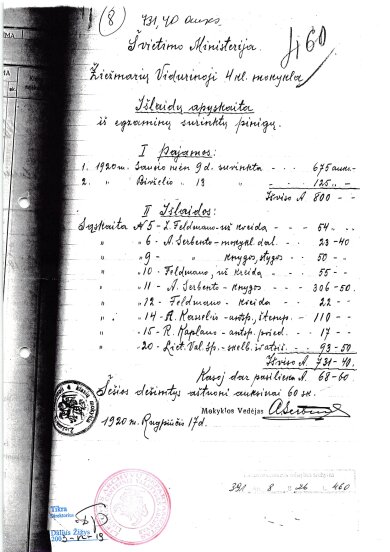 (8) 731,40 auks.
460
Švietimo Ministerija.
Žiežmarių Vidurinoji 4 kl. mokykla
Išlaidų apyskaita
iš egzaminų surinktų pinigų.
I Pajamos:
1. 1920 m. Sausio mėn 9 d. surinkta - - - 675 auks.-
2. " Birželio " 13 " - - - 125 " -
Išviso A. 800 - -
II Išlaidos:
Sąskaita N 5 - Z. Feldmano už kreidą - - - 64 - -
" " 6 - A. Serbento - mokykl. dal. - - - 23 - 40
" " 9 - " knygos, - - 50 - -
" " 10 - Feldmano, už kreidą - - - 55 - -
" " 11 - A. Serbento - knygos - - - 306 - 50.
" " 12 - Feldmano - kreida - - - 22 - -
" " 14 - R. - antsp. - - 110 - -
" " 15 - R. Kaplano - antsp. pried. - - 17 - -
" " 20 - Liet. Val. Sp. - skelb. - - 93 - 50
Išviso A. 731 - 40.
Kasoj dar pasilieka A. 68 - 60
Šešios dešimtys aštuoni auksinai 60 sk.
Mokyklos Vedėjas
1920 m. Rugpiūčio 17 d.
391 8 26 460
Tikra
Direktorius
Dalius Žižys